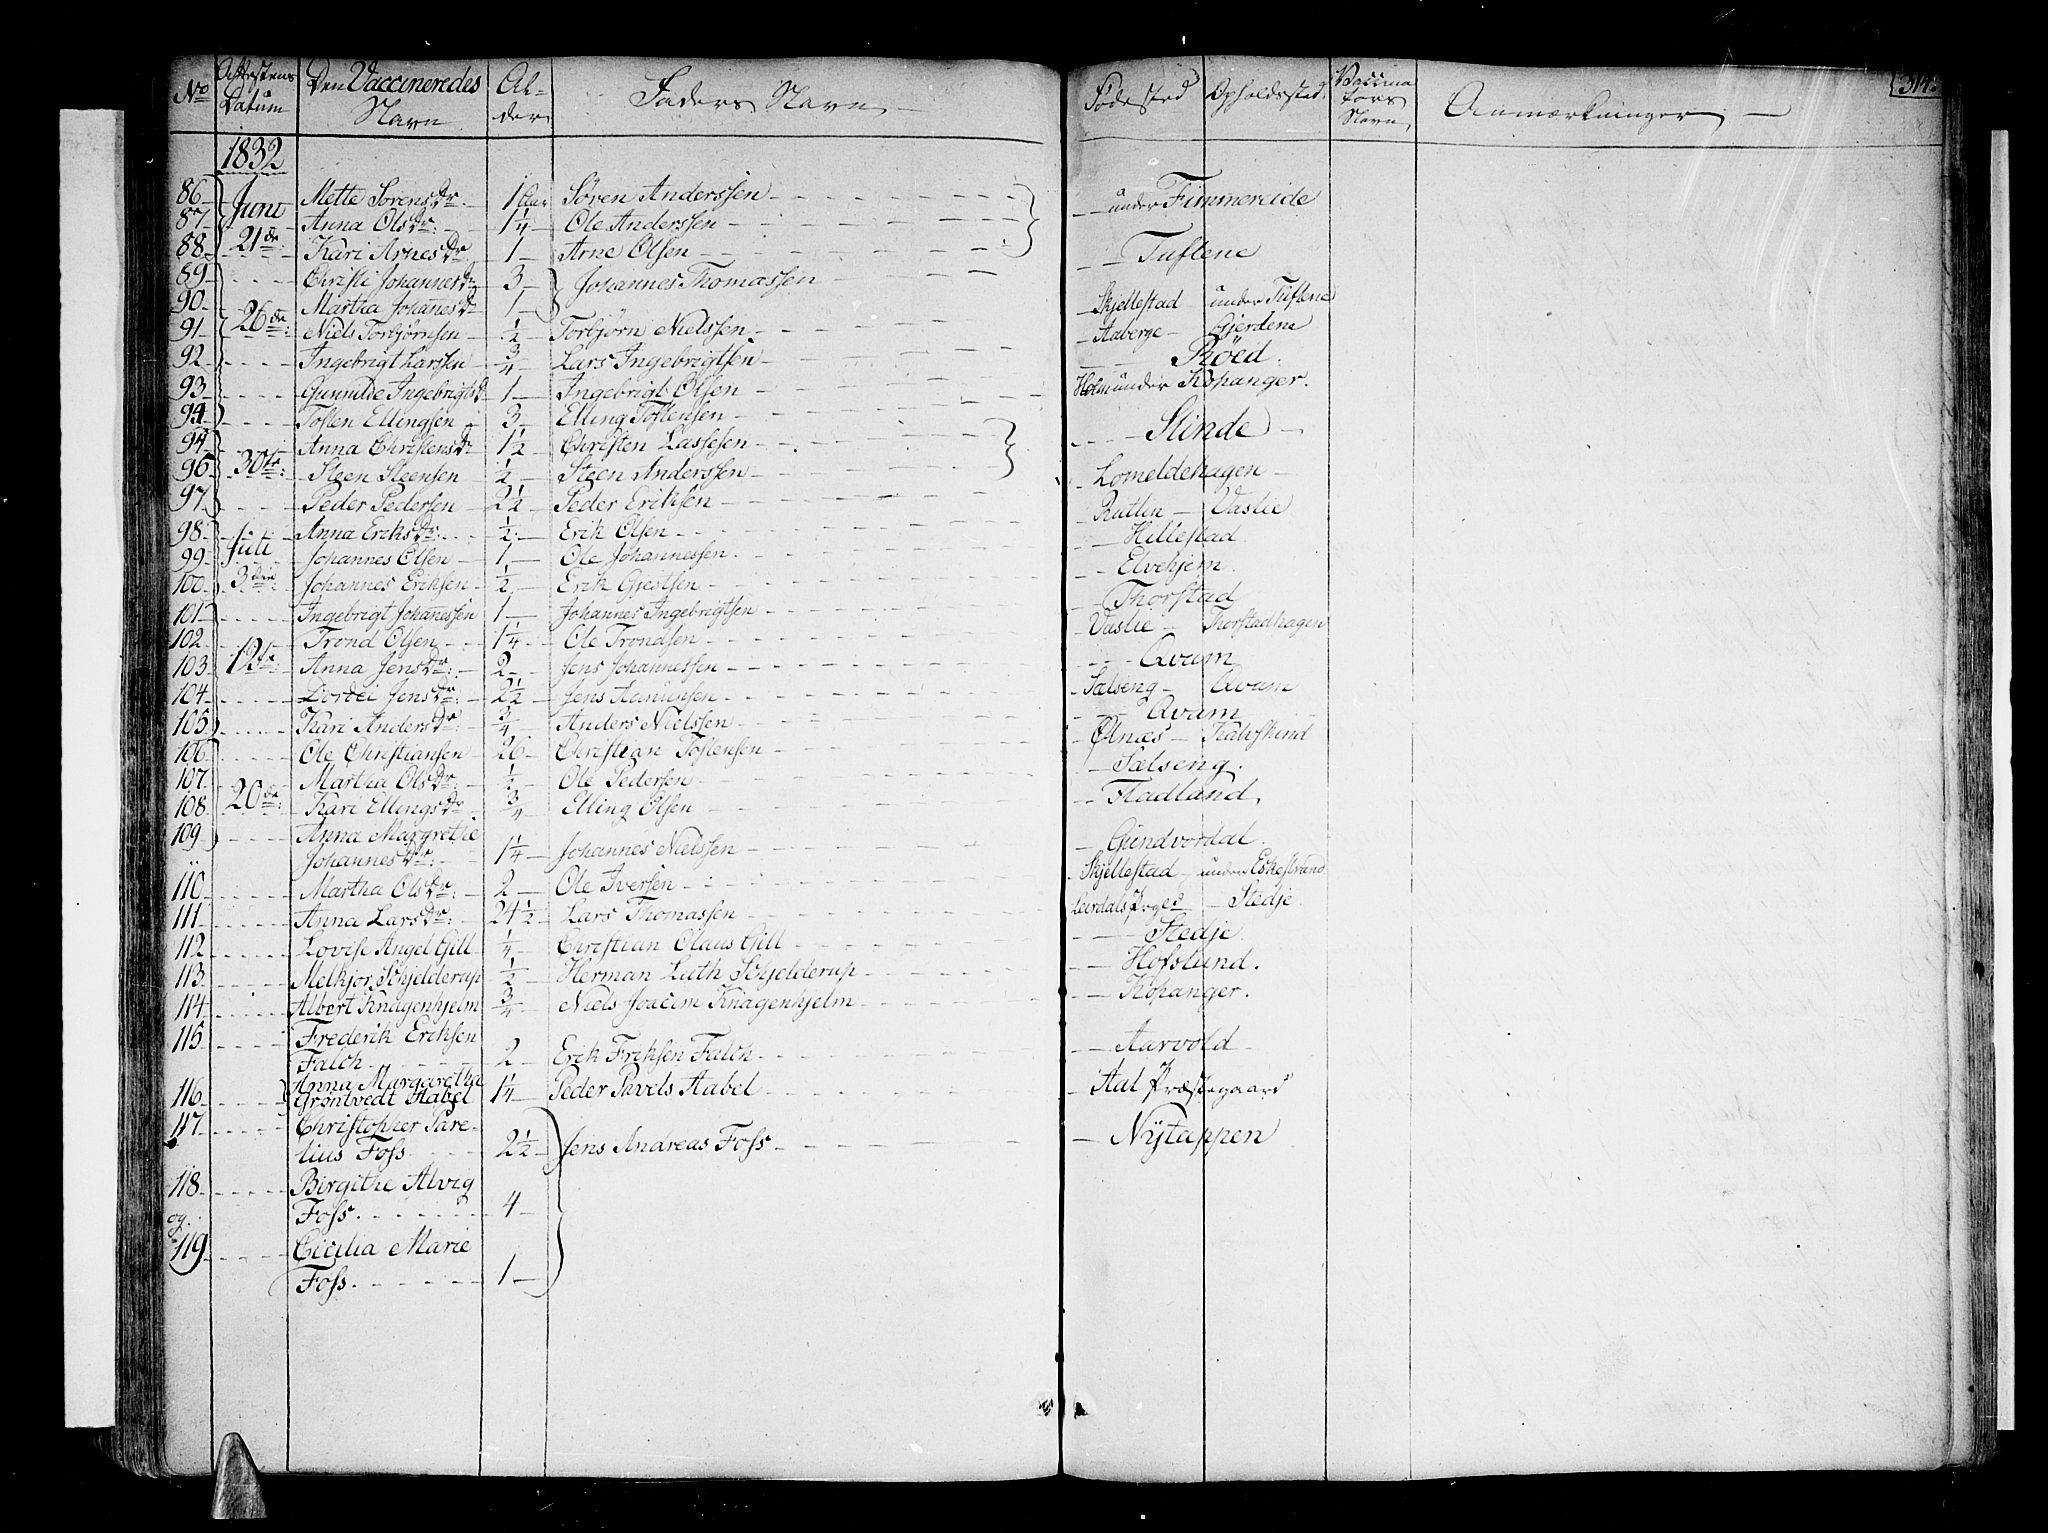 No Attestens Datum Den Vaccineredes Navn Al- der Faders Navn Fødested Opholdssted Vaccina tors Navn Anmærkninger 314.
1832
86 Juni Mette Sørensdr. 1 Søren Anderssen under Fimmereide
87 Anna Olsdr: 1 1/4 Ole Anderssen
88 21de: Kari Arnesdr 1 Arne Olsen Tuftene
89 Christi Johannesdr 3 Johannes Thomassen
90 Martha Johanesdr 1 Skjellestad under Tuftene
91 26de: Niels Torbjørnsen 1/2 Torbjørn Nielssen Aaberge Gjerdene
92 Ingebrigt Larssen 3/4 Lars Ingebrigtsen Röed.
93 Gunnilde Ingebrigtsd 1 Ingebrigt Olsen Holm under Kopanger.
94 Tosten Ellingsen 3 Elling Tostensen Slinde
94 Anna Christensdr 1 1/2 Christen Lassesen
96 30te: Steen Steensen 1/2 Steen Anderssen Lomeldehagen
97 Peder Pedersen 2 1/2 Peder Eriksen Rutlin Vaslie
98 Anna Eriksdr: 1/2 Erik Olsen Hillestad
99 Juli Johannes Olsen 1 Ole Johannessen Elvehjem
100 3die Johannes Eriksen 1/2 Erik Gjestsen Thorstad
101 Ingebrigt Johanessen 1 Johannes Ingebrigtsen Vaslie Thorstadhagen
102 Trond Olsen 1 1/4 Ole Trondsen Qvam
103 12te Anna Jensdr: 2 Jens Johannessen Sælseng Qvam
104 Dordei Jensdr: 2 1/2 Jens Aamunsen Qvam
105 Kari Andersdr 3/4 Anders Nielssen Ølnæs Kalvskind
106 Ole Christiansen 26 Christian Tostensen Sælseng.
107 Martha Olsdr: 1/2 Ole Pedersen
108 20de: Kari Ellingsdr 3/4 Elling Olsen Fladland
109 Anna Margrethe
Johannesdr: 1 1/4 Johannes Nielssen Gundvordal.
110 Martha Olsdr: 2 Ole Iversen Skjellestad under Eskestrand
111 Anna Larsdr: 24 1/2 Lars Thomassen Leirdals Prged Stedje
112 Lovise Angel Gill 1/4 Christian Olaus Gill Stedje
113 Melkjor Schjelderup 1/2 Herman Luth Schjelderup Hofslund.
114 Albert Knagenhjelm 3/4 Niels Joacim Knagenhjelm Kopanger.
115 Frederik Eriksen
Falch 2 Erik Friksen Falch Aarvold
116 Anna Margaretha
Grøntvedt Aabel 1 1/4 Peder Pavels Aabel Aal Præstegaard
117 Christopher Pare-
lius Foss 2 1/2 Jens Andreas Foss Nytappen
118 Birgithe Alvig
og. Foss. 4
119 Cicilia Marie
Foss. 1